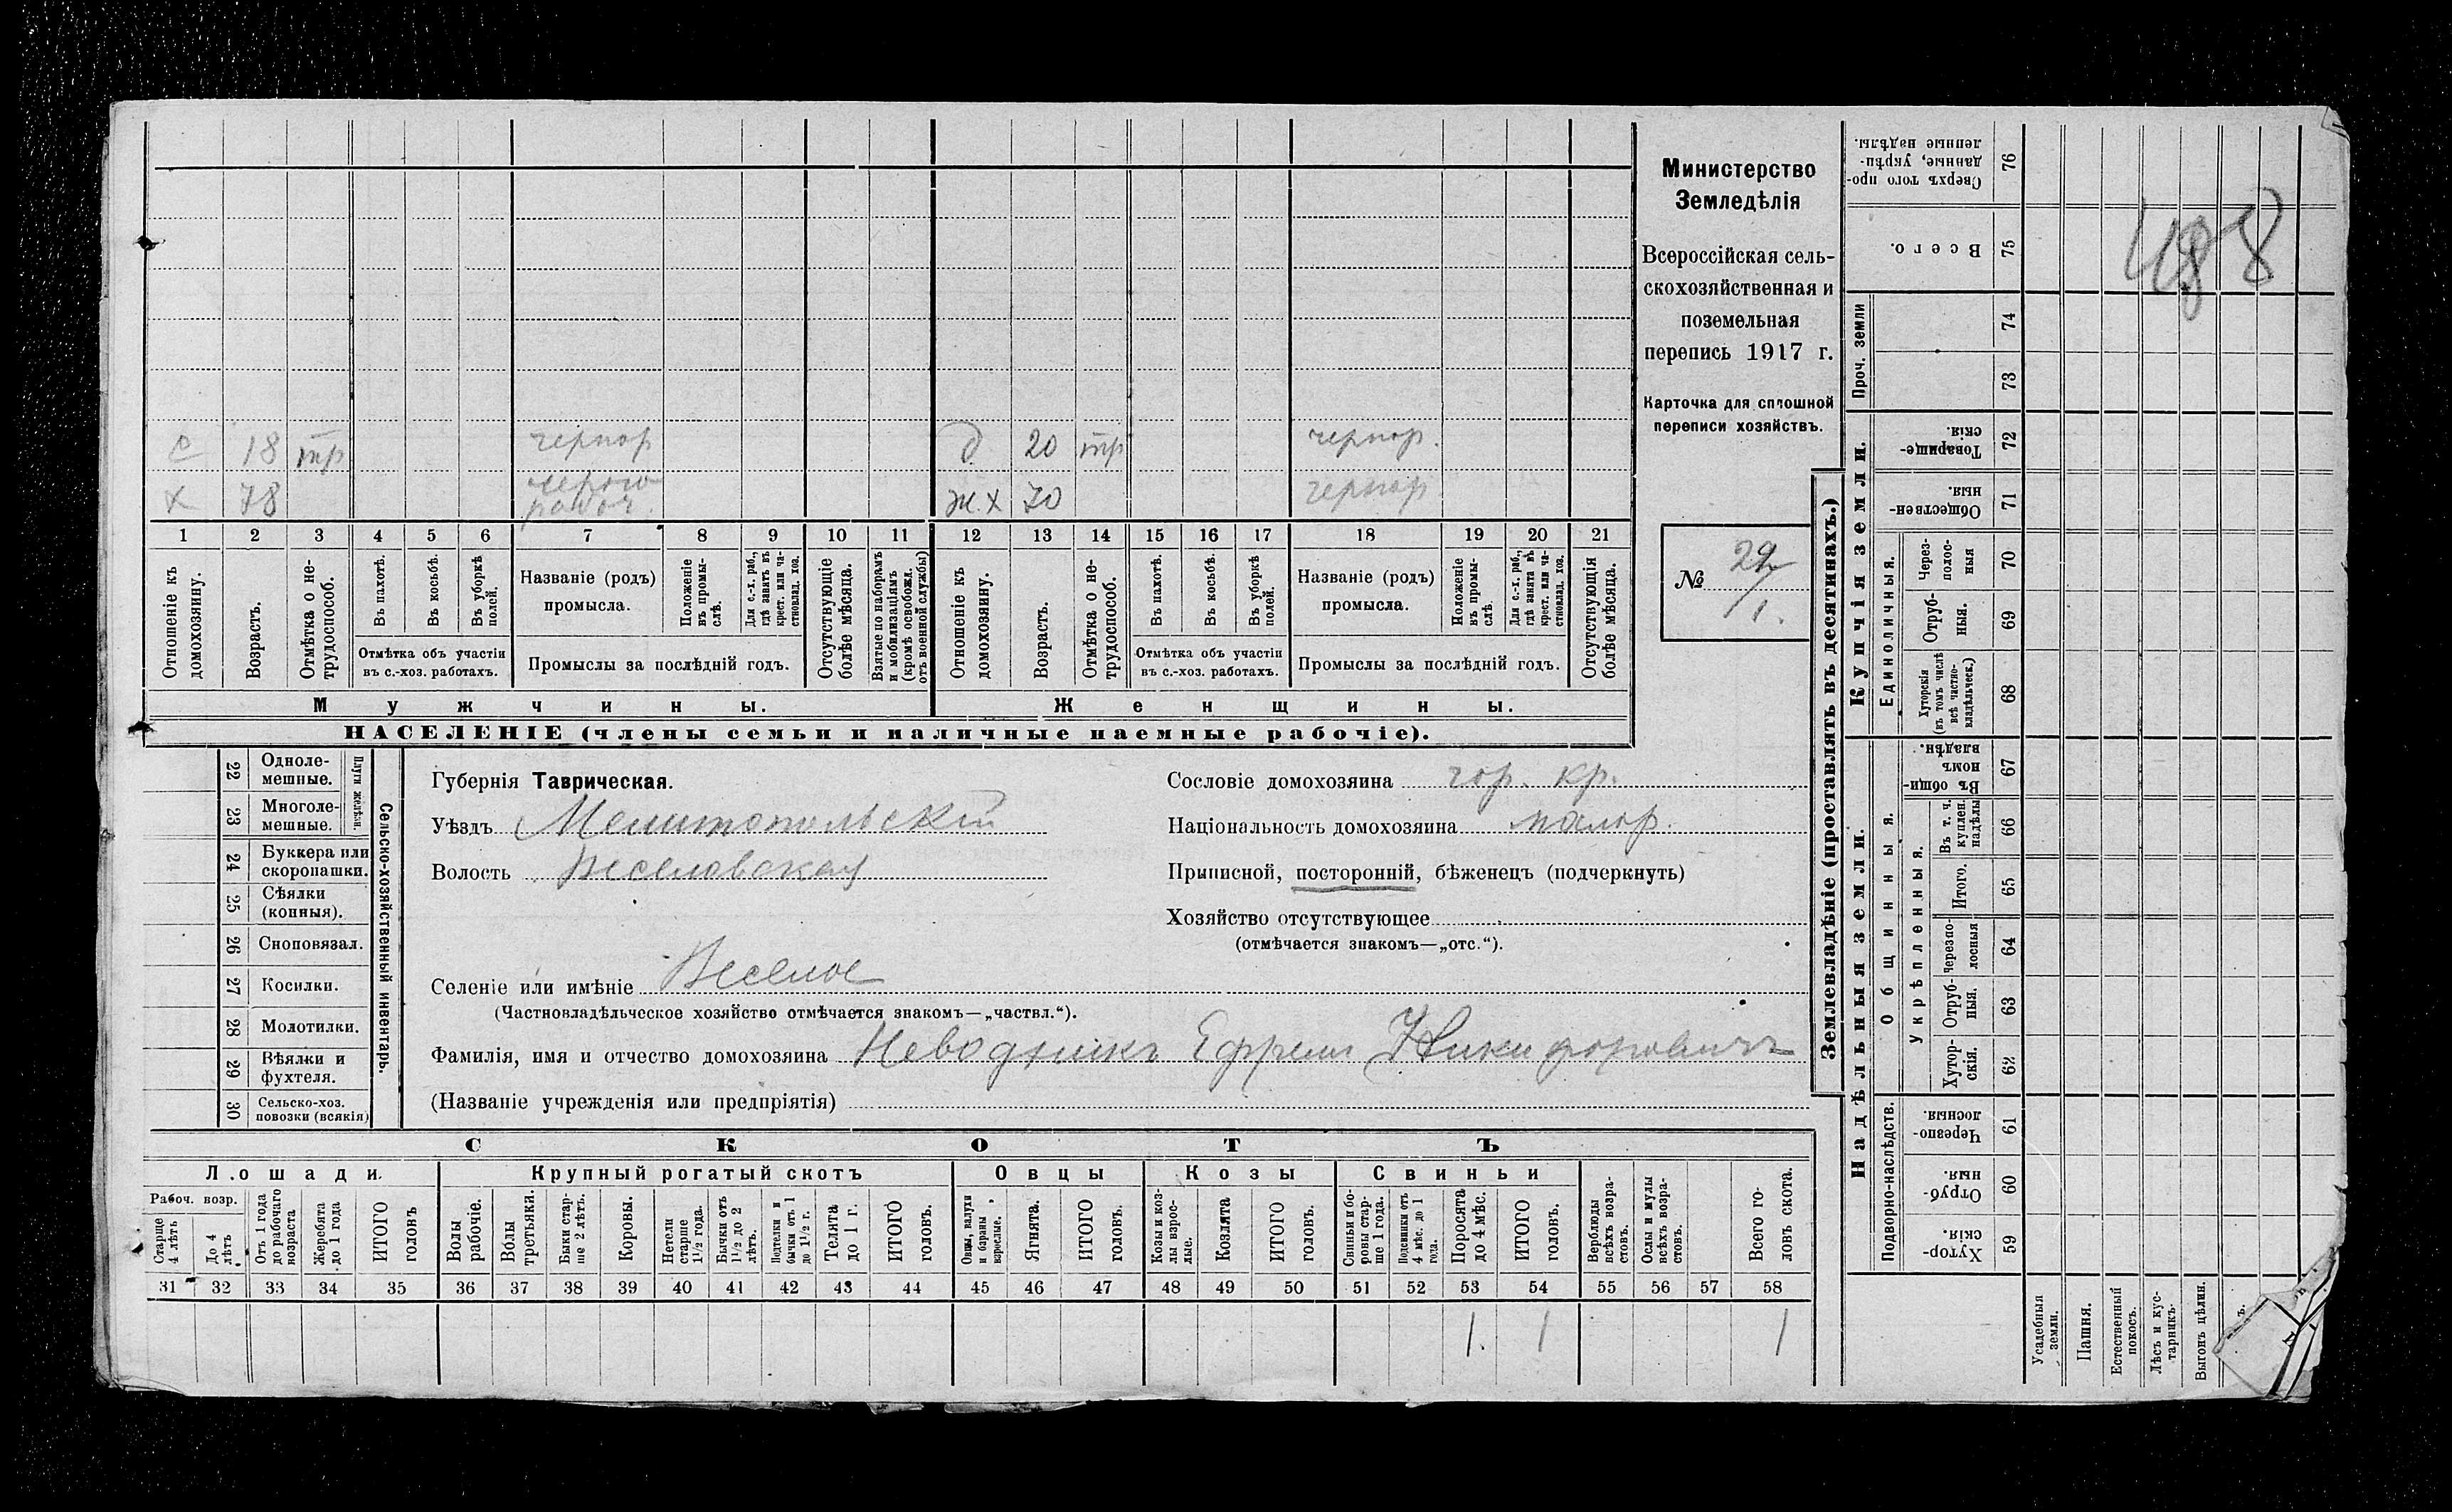 Министерство
Земледѣлія
Всероссійская сель-
скохозяйственная и
поземельная
перепись 1917 г.
Карточка для сплошной
переписи хозяйствъ.
№ 29/1.
488
с 18 тр чернор д 20 тр чернор.
х 78 черно ж.х 70 чернор
рабоч.
1 2 3 4 5 6 7 8 9 10 11 12 13 14 15 16 17 18 19 20 21
Отношеніе къ домохозяину.
Возрастъ.
Отмѣтка о не-трудоспособ.
Въ пахотѣ.
Въ косьбѣ.
Въ уборкѣ полей.
Отмѣтка объ участіи
въ с.-хоз. работахъ.
Названіе (родъ)
промысла.
Положеніе въ промы-слѣ.
Для с.-х. раб., гдѣ занятъ въ крест. или ча-стновлад. хоз.
Промыслы за послѣдній годъ.
Отсутствующіе болѣе мѣсяца.
Взятые по наборамъ и мобилизаціямъ (кромѣ освобожд. отъ военной службы)
Отношеніе къ домохозяину.
Возрастъ.
Отмѣтка о не-трудоспособ.
Въ пахотѣ.
Въ косьбѣ.
Въ уборкѣ полей.
Отмѣтка объ участіи
въ с.-хоз. работахъ.
Названіе (родъ)
промысла.
Положеніе въ промы-слѣ.
Для с.-х. раб., гдѣ занята въ крест. или ча-стновлад. хоз.
Промыслы за послѣдній годъ.
Отсутствующія болѣе мѣсяца.
Мужчины. Женщины.
НАСЕЛЕНІЕ (члены семьи и наличные наемные рабочіе).
22 Одноле-мешные.
23 Многоле-мешные.
Плуги желѣзн.
24 Буккера или скоропашки.
25 Сѣялки (конныя).
26 Сноповязал.
27 Косилки.
28 Молотилки.
29 Вѣялки и фухтеля.
30 Сельско-хоз. повозки (всякія)
Сельско-хозяйственный инвентарь.
Губернія Таврическая.
Уѣздъ Мелитопольскій
Волость Веселовская
Сословіе домохозяина гор. кр.
Національность домохозяина малор.
Приписной, посторонній, бѣженецъ (подчеркнуть)
Хозяйство отсутствующее
(отмѣчается знакомъ—„отс.“).
Селеніе или имѣніе Веселое
(Частновладѣльческое хозяйство отмѣчается знакомъ—„частвл.“).
Фамилія, имя и отчество домохозяина Неводникъ Ефремъ Никифоровичъ
(Названіе учрежденія или предпріятія)
СКОТЪ
Лошади. Крупный рогатый скотъ Овцы Козы Свиньи
Рабоч. возр.
Старше 4 лѣтъ
До 4 лѣтъ
Отъ 1 года до рабочаго возраста
Жеребята до 1 года
ИТОГО головъ
Волы рабочіе.
Волы третьяки.
Быки стар-ше 2 лѣтъ.
Коровы.
Нетели старше 1 1/2 года.
Бычки отъ 1 1/2 до 2 лѣтъ.
Подтелки и бычки отъ 1 до 1 1/2 г.
Телята до 1 г.
ИТОГО головъ.
Овцы, валухи и бараны взрослые.
Ягнята.
ИТОГО головъ.
Козы и коз-лы взрос-лые.
Козлята
ИТОГО головъ.
Свиньи и бо-ровы стар-ше 1 года.
Подсвинки отъ 4 мѣс. до 1 года.
Поросята до 4 мѣс.
ИТОГО головъ.
Верблюды всѣхъ возра-стовъ.
Ослы и мулы всѣхъ возра-стовъ.
Всего го-ловъ скота.
31 32 33 34 35 36 37 38 39 40 41 42 43 44 45 46 47 48 49 50 51 52 53 54 55 56 57 58
1. 1 1
Землевладѣніе (проставлять въ десятинахъ.)
Надѣльныя земли. Купчія земли. Проч. земли
Подворно-наслѣдств.
Общинныя.
Укрѣпленныя.
Единоличныя.
Сверхъ того про-данные, укрѣп-ленные надѣлы. 76
Всего. 75
74
73
Товарище-скія. 72
Обществен-ныя. 71
Через-полос-ныя 70
Отруб-ныя. 69
Хуторскія (въ томъ числѣ всѣ частно-владѣльческ.) 68
Въ общин-номъ владѣн. 67
Въ т. ч. куплен. надѣлы 66
Итого. 65
Черезпо-лосныя 64
Отруб-ныя. 63
Хутор-скія. 62
Черезпо-лосныя. 61
Отруб-ныя. 60
Хутор-скія. 59
Усадебныя земли.
Пашня.
Естественный покосъ.
Лѣсъ и кус-тарникъ.
Выгонъ цѣлин.